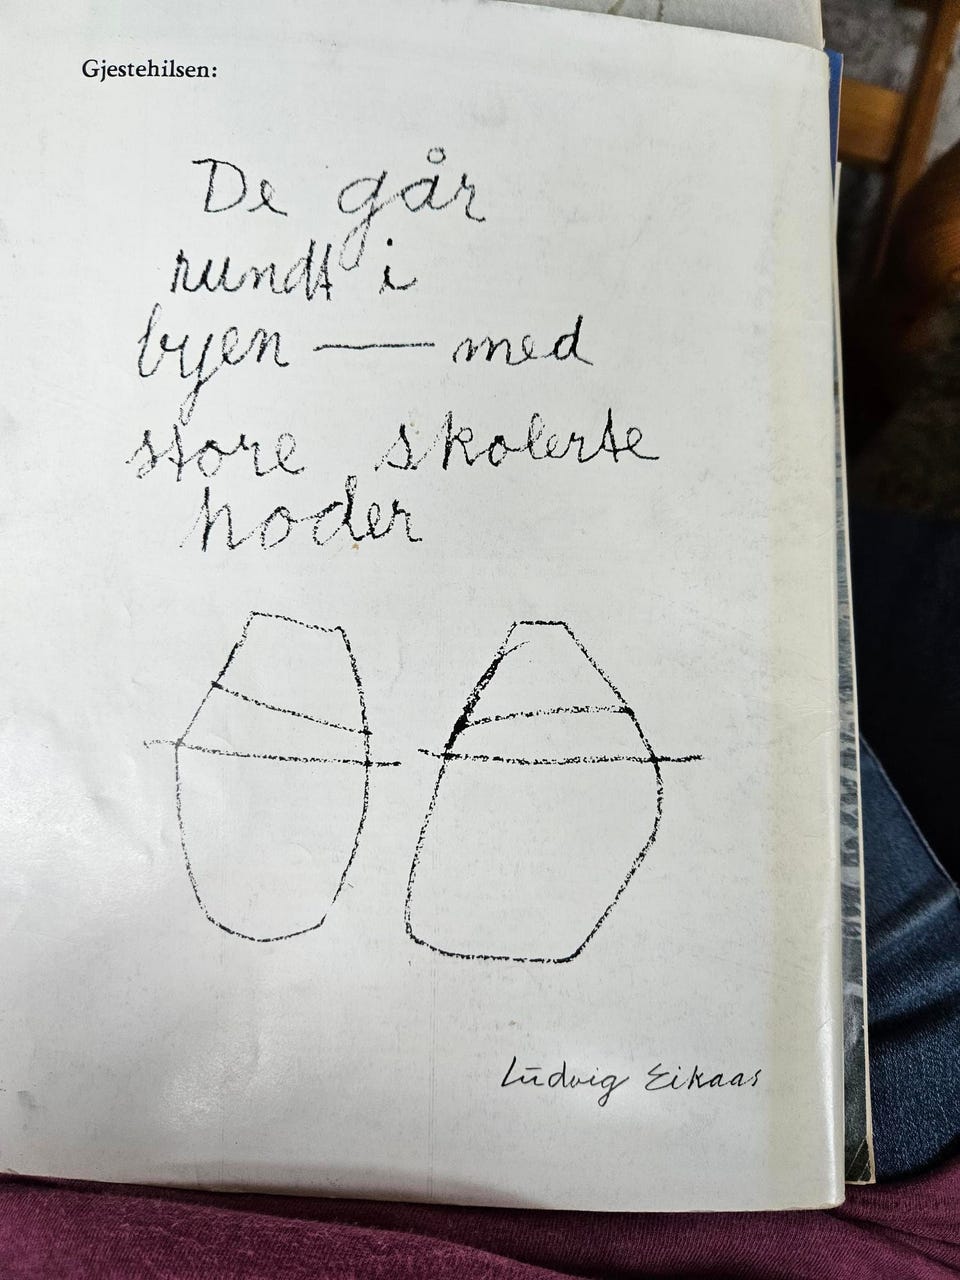 Gjestehilsen:
De går
rundt i
byen — med
store skolerte
hoder
Ludvig Eikaas